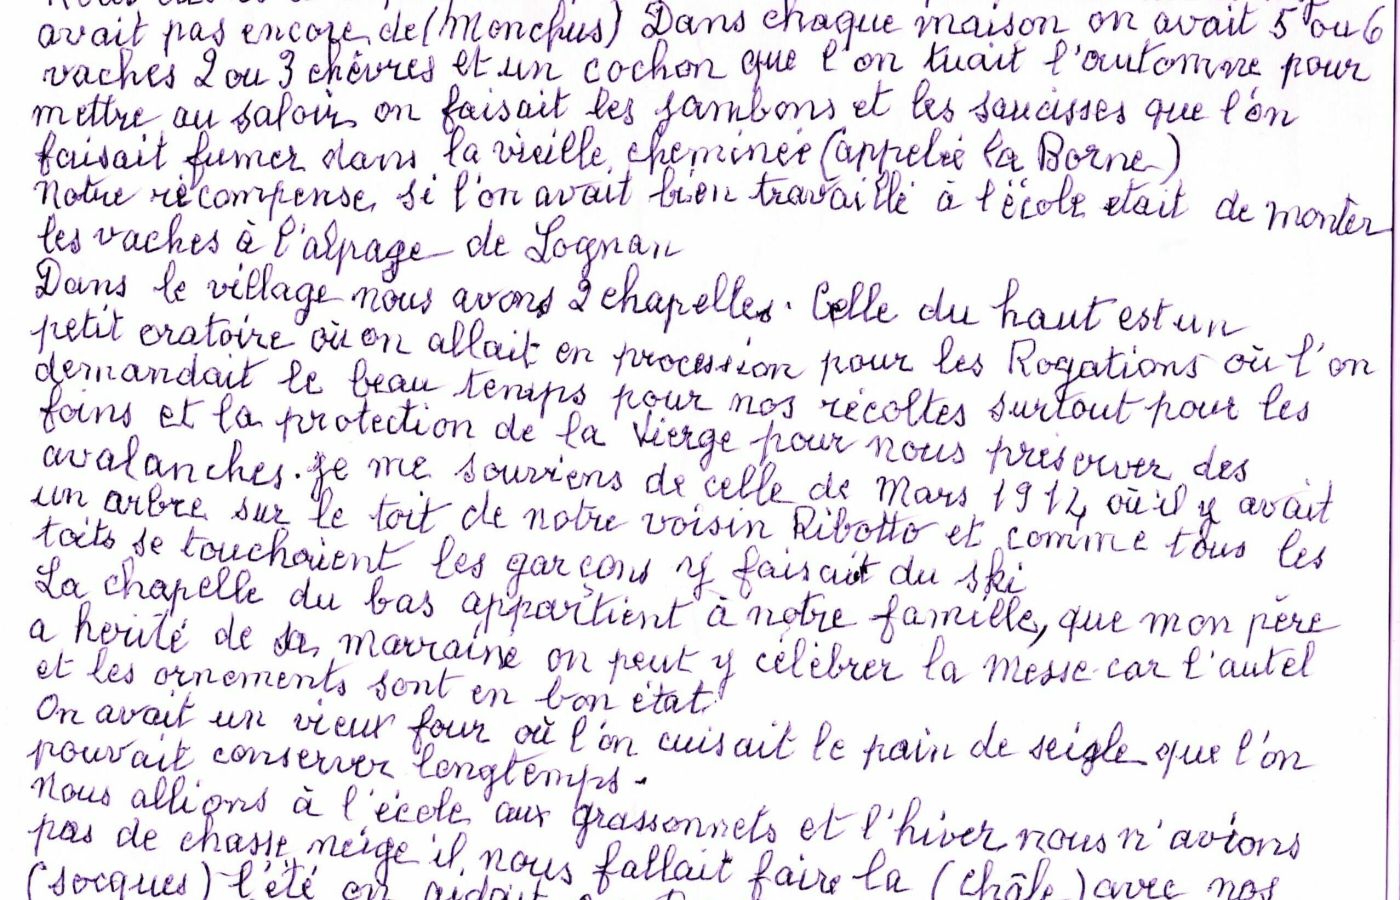 avait pas encore de (Monchus) Dans chaque maison on avait 5 ou 6
vaches 2 ou 3 chèvres et un cochon que l'on tuait l'automne pour
mettre au saloir on faisait les jambons et les saucisses que l'on
faisait fumer dans la vieille cheminée (appelée la Borne)
Notre récompense si l'on avait bien travaillé à l'école etait de monter
les vaches à l'alpage de Lognan
Dans le village nous avons 2 chapelles. Celle du haut est un
petit oratoire où on allait en procession pour les Rogations où l'on
demandait le beau temps pour nos récoltes surtout pour les
foins et la protection de la Vierge pour nous préserver des
avalanches. Je me souviens de celle de Mars 1914 où il y avait
un arbre sur le toit de notre voisin Ribotto et comme tous les
toits se touchaient les garçons y faisait du ski
La chapelle du bas appartient à notre famille, que mon père
a herité de sa marraine on peut y célébrer la Messe car l'autel
et les ornements sont en bon état.
On avait un vieux four où l'on cuisait le pain de seigle que l'on
pouvait conserver longtemps.
Nous allions à l'école aux grassonnets et l'hiver nous n'avions
pas de chasse neige il nous fallait faire la (châle) avec nos
(socques) l'été on aidait